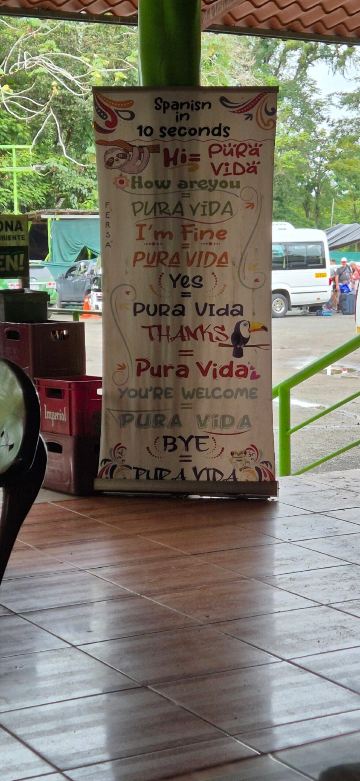 Spanish
in
10 seconds
Hi = PURA
VIDA
How areyou
=
PURA VIDA
I'm Fine
=
PURA VIDA
Yes
=
Pura Vida
THANKS
=
Pura Vida
YOU'RE WELCOME
=
PURA VIDA
BYE
=
PURA VIDA
FERSA
ONA
BIENTE
EN!
Imperial